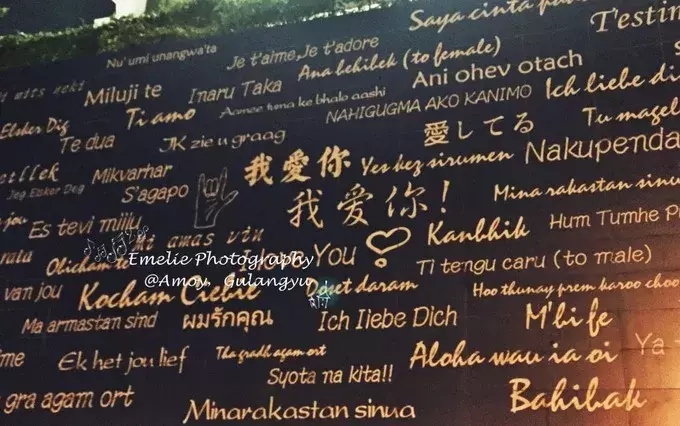 Saya cinta
T'estim
Nu' umi unangwa'ta
Je t'aime,Je t'adore
Ana behibek (to female)
Ani ohev otach
Ich liebe di
Miluji te
Inaru Taka
Aamee tuma ke bhalo aashi
NAHIGUGMA AKO KANIMO
Tu magel
Elsker Dig
Ti amo
Te dua
JK zie u graag
愛してる
Nakupenda
Mikvarhar
我愛你
Yes kez sirumen
Jeg Elsker Deg
S'agapo
我愛你!
Mina rakastan sinu
Es tevi milju
Kanbhik
Hum Tumhe P
amas vin
Emelie Photography
I love You
Ti tengu caru (to male)
Ohicham te
@Amoy, Gulangyu
van jou
Kocham Ciebie
Doset daram
Hoo thunay prem karoo choo
Ma armastan sind
ผมรักคุณ
Ich Iiebe Dich
M'bi fe
Ek het jou lief
Tha gradh agam ort
Aloha wau ia oi
Ya
Syota na kita!!
gra agam ort
Minarakastan sinua
Bahibak